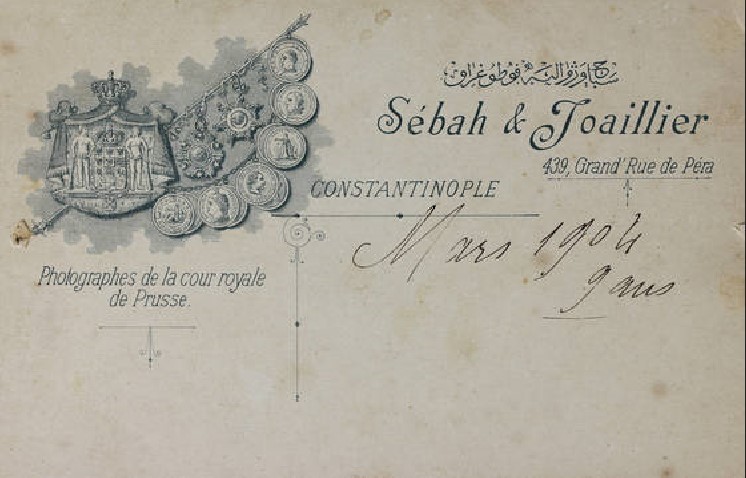 سباح وژواليه فوطوغراف
Sébah & Joaillier
439, Grand'Rue de Péra
CONSTANTINOPLE
Mars 1904
9 ans
Photographes de la cour royale
de Prusse.